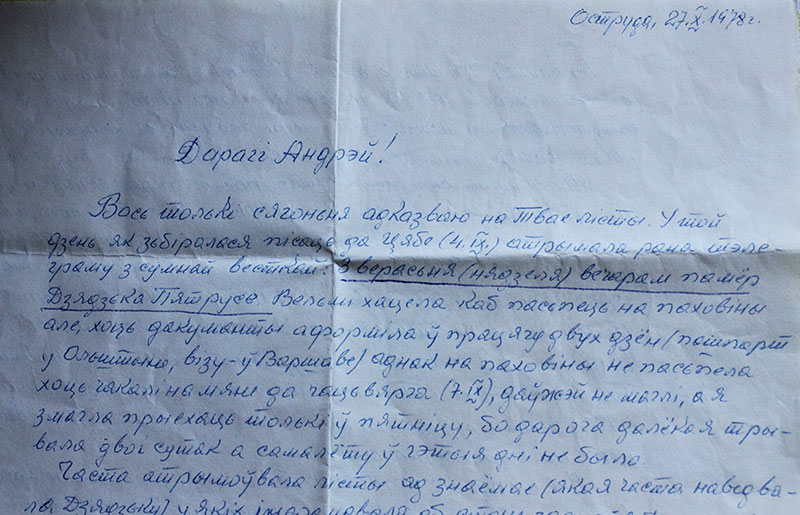 Оструда, 27.X.1978г.
Дарагі Андрэй!
Вось толькі сягоньня адказваю на Твае лісты. У той
дзень як зьбіралася пісаць да Цябе (4.IX.) атрымала рана тэле-
граму з сумнай весткай: 3 верасьня (нядзеля) вечарам памёр
Дзядзька Пятрусь. Вельмі хацела каб пасьпець на паховіны
але, хоць дакуманты аформіла ў працягу двух дзён (пашпарт
у Ольштыне, візу-ў Варшаве) аднак на паховіны не пасьпела
хоць чакалі на мяне да чацьвярга (7.IX), даўжэй не маглі, а я
змагла прыехаць толькі ў пятніцу, бо дарога далёкая тры-
вала двоі сутак а самалёту ў гэтыя дні не было.
Часта атрымоўвала лісты ад знаёмае (якая часта наведва-
ла Дзядзьку) у якіх